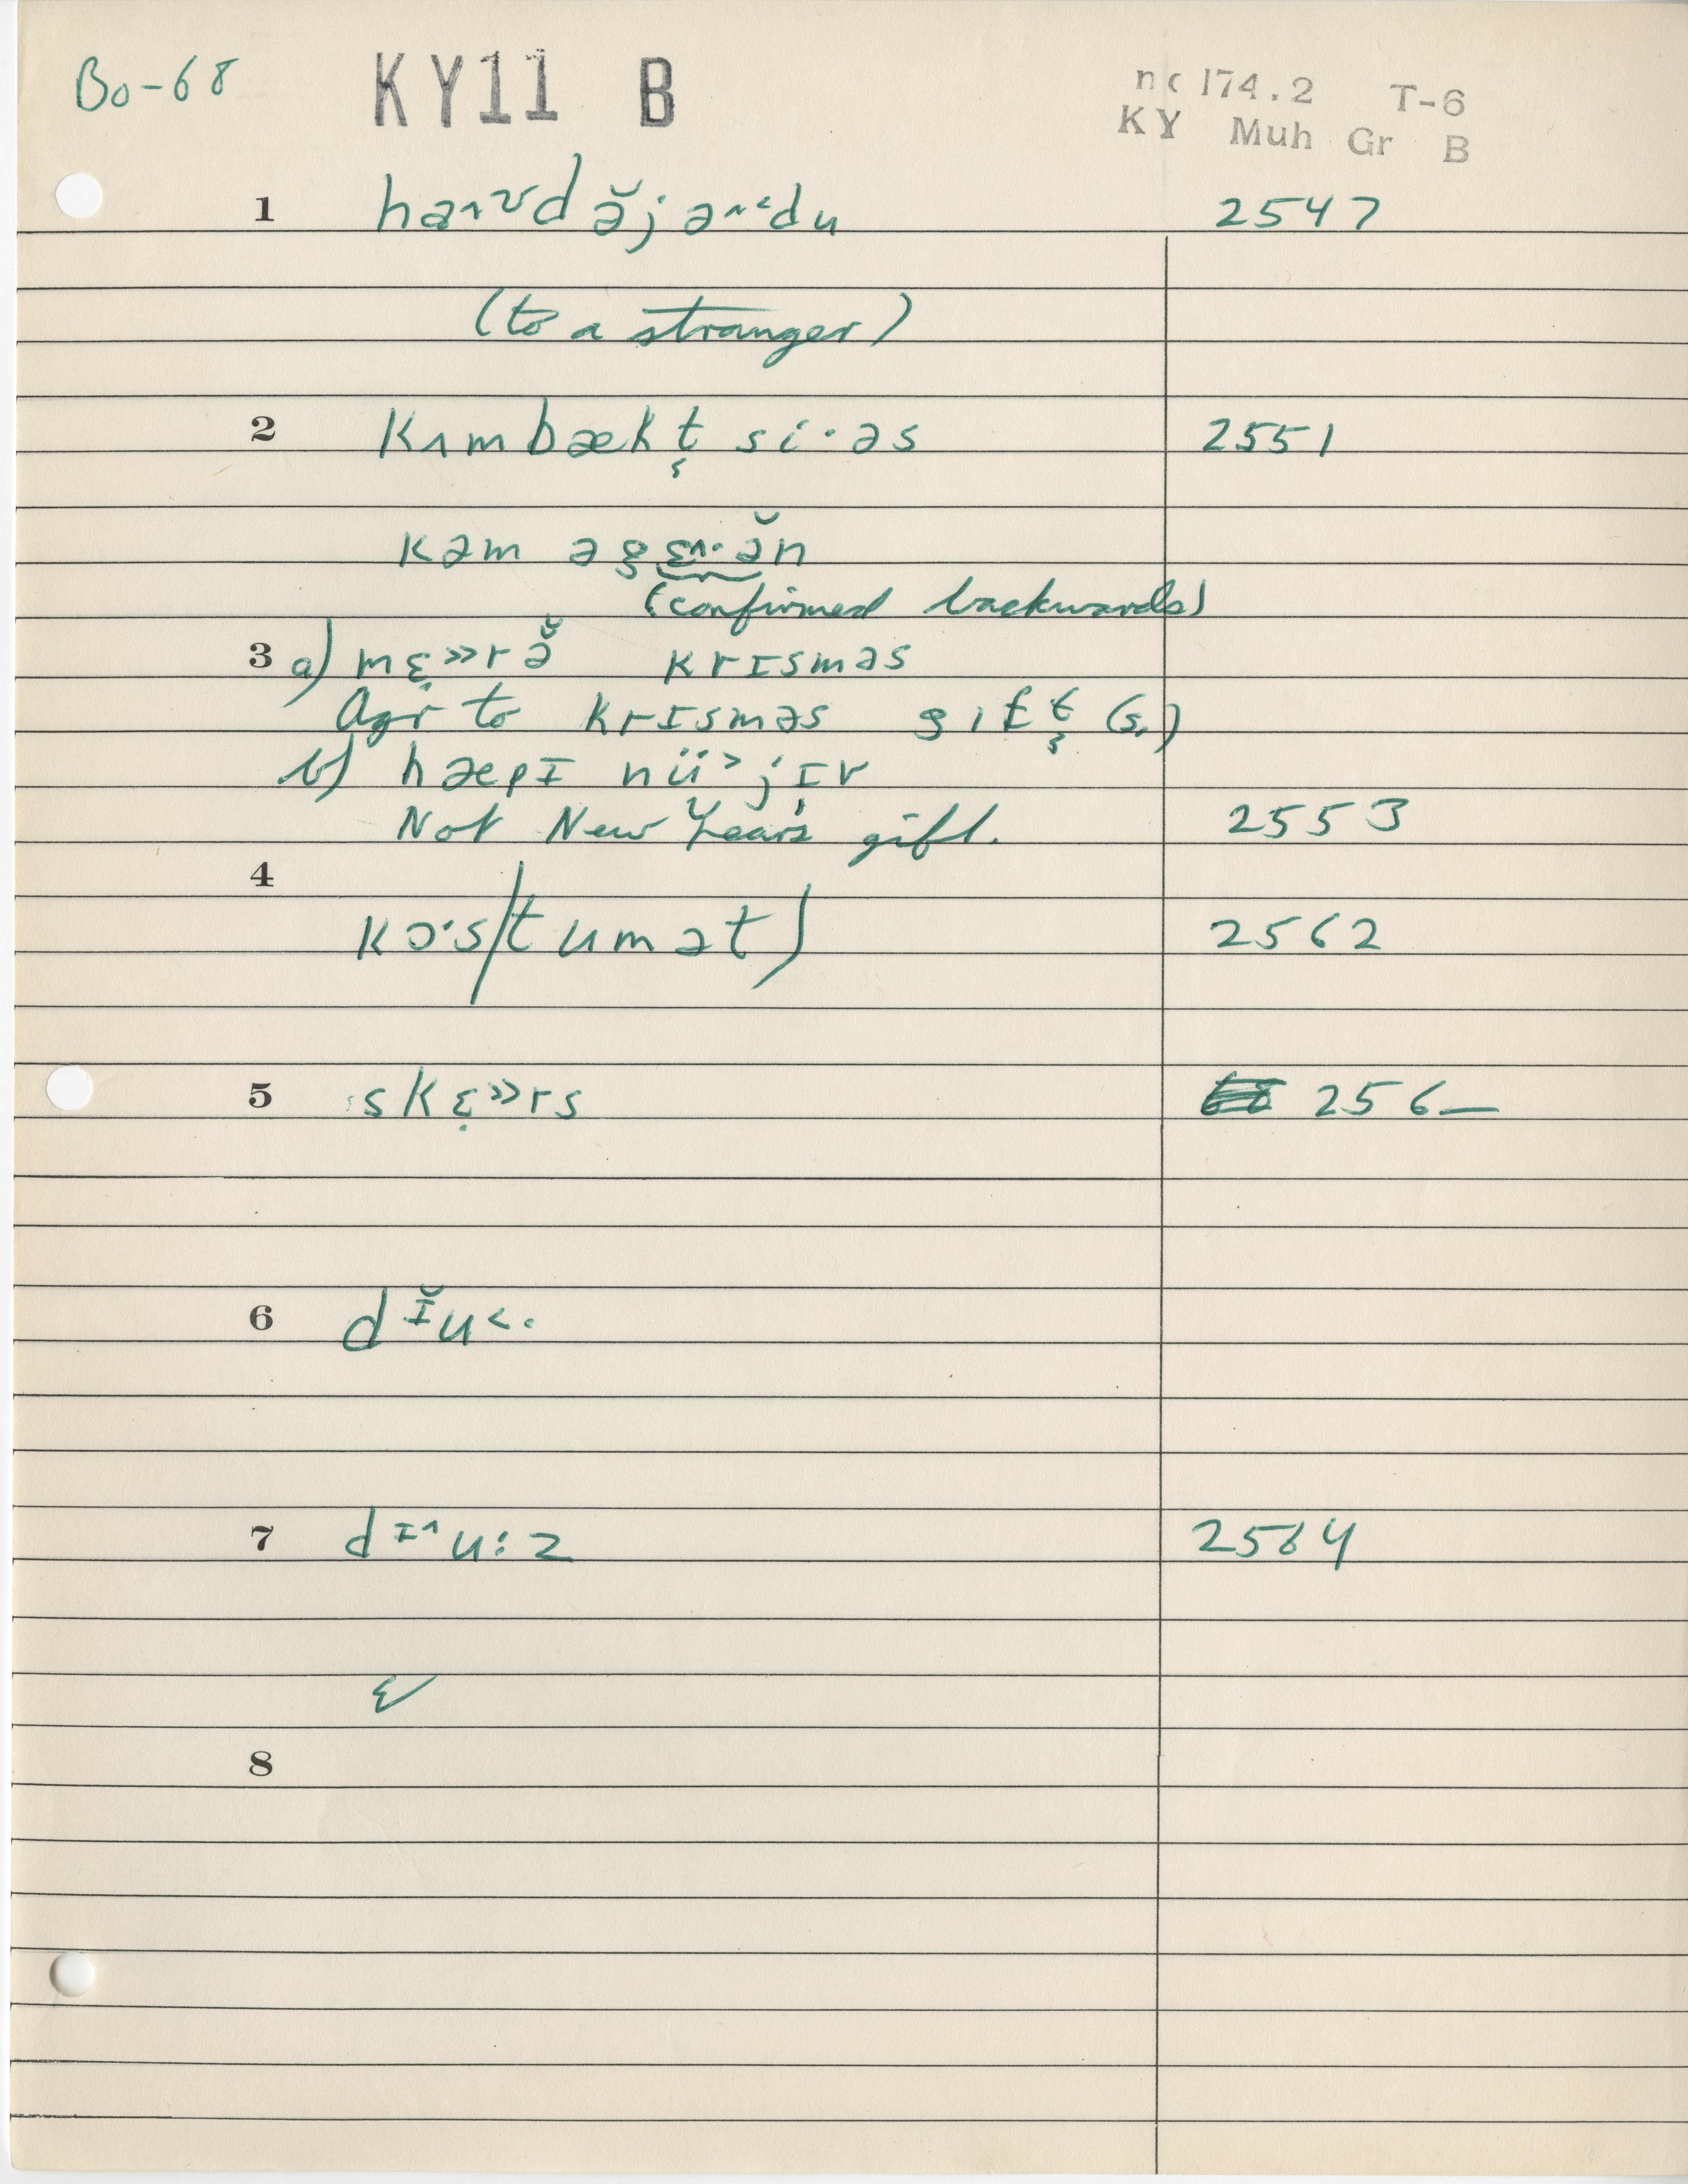 Bo-68 KY11 B nc 174.2 T-6
KY Muh Gr B
1 haʌ˅d ə̆j ə˄˂du 2547
(to a stranger)
2 kʌmbækt̬ si·əs 2551
kəm əgɛ˄·ə̆n
(confirmed backwards)
3 a) mɛ̣»rə̆ krɪsməs
Agr to krɪsməs gɪft̬ (s.)
b) hæpɪ nü˃jɪr
Not New Year's gift. 2553
4
kɔ·s/tumət) 2562
5 skɛ̣»rs 256_
6 dɪ̆u˂·
7 dɪ˄u:z 2564
ɛ
8